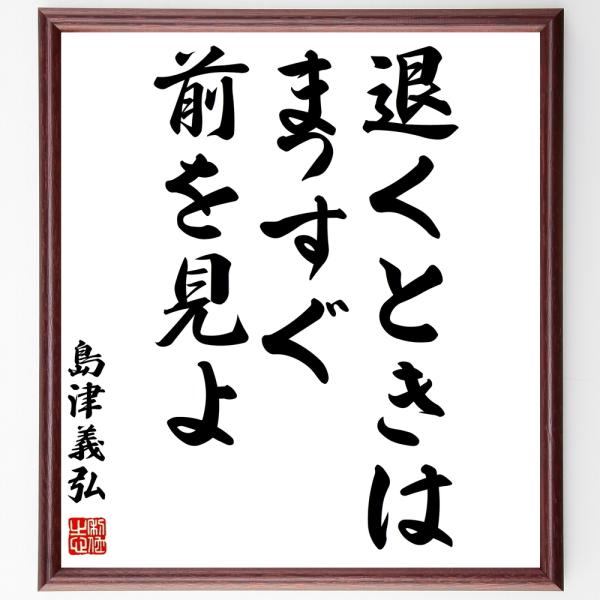 退くときは
まっすぐ
前を見よ
島津義弘